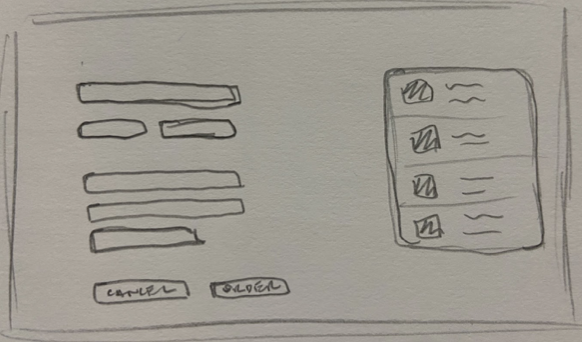 CANCEL
ORDER